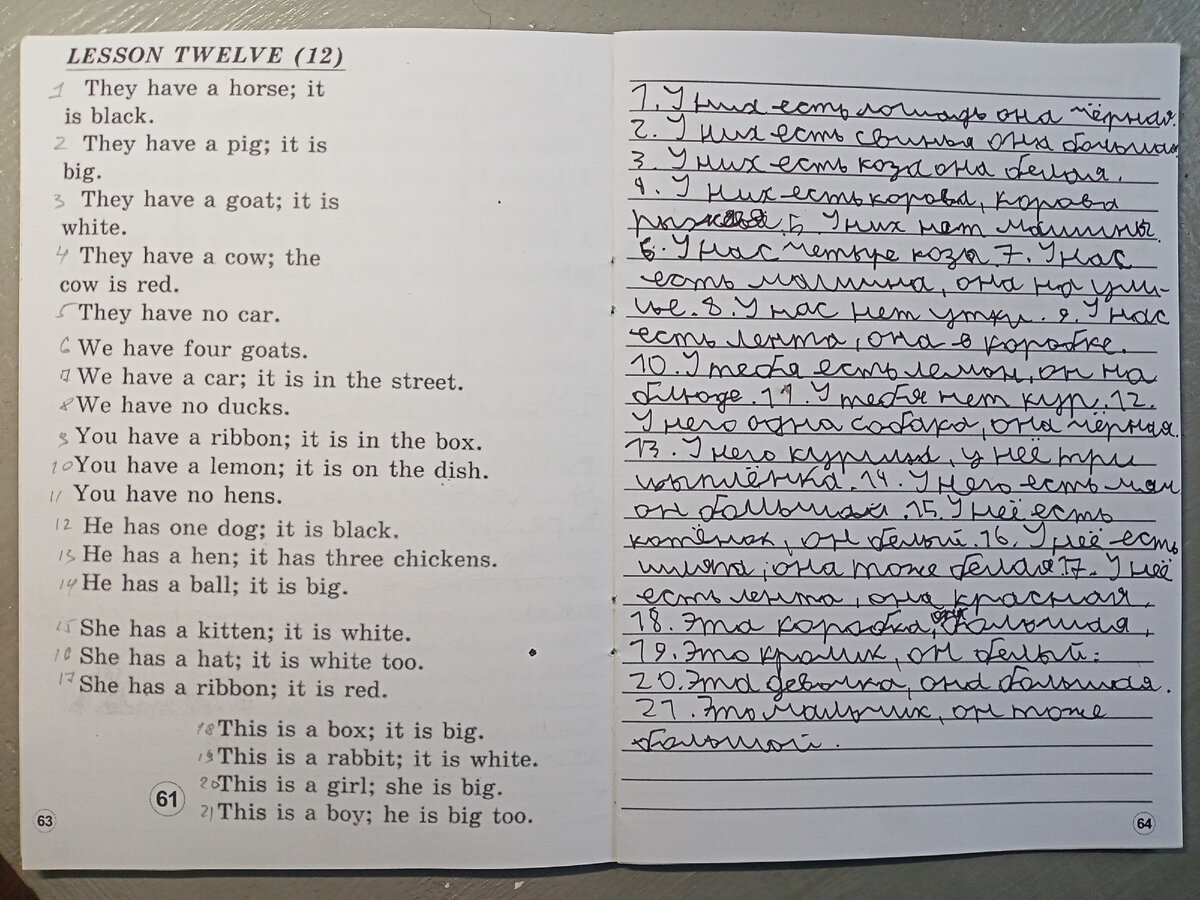 LESSON TWELVE (12)
1 They have a horse; it
is black.
2 They have a pig; it is
big.
3 They have a goat; it is
white.
4 They have a cow; the
cow is red.
5 They have no car.
6 We have four goats.
7 We have a car; it is in the street.
8 We have no ducks.
9 You have a ribbon; it is in the box.
10 You have a lemon; it is on the dish.
11 You have no hens.
12 He has one dog; it is black.
13 He has a hen; it has three chickens.
14 He has a ball; it is big.
15 She has a kitten; it is white.
16 She has a hat; it is white too.
17 She has a ribbon; it is red.
18 This is a box; it is big.
19 This is a rabbit; it is white.
20 This is a girl; she is big.
21 This is a boy; he is big too.
61
63
1. У них есть лошадь она чёрная.
2. У них есть свинья она большая
3. У них есть коза она белая.
4. У них есть корова, корова
рыжая. 5. У них нет машины.
6. У нас четыре козы 7. У нас
есть машина, она на ули-
це. 8. У нас нет утки. 9. У нас
есть лента, она в коробке.
10. У тебя есть лемон, он на
блюде. 11. У тебя нет кур. 12.
У него одна собака, она чёрная.
13. У него курица, у неё три
цыплёнка. 14. У него есть мяч
он большой. 15. У неё есть
котёнок, он белый. 16. У неё есть
шляпа, она тоже белая 17. У неё
есть лента, она красная.
18. Эта коробка, она большая.
19. Это кролик, он белый.
20. Эта девочка, она большая.
21. Это мальчик, он тоже
большой.
64